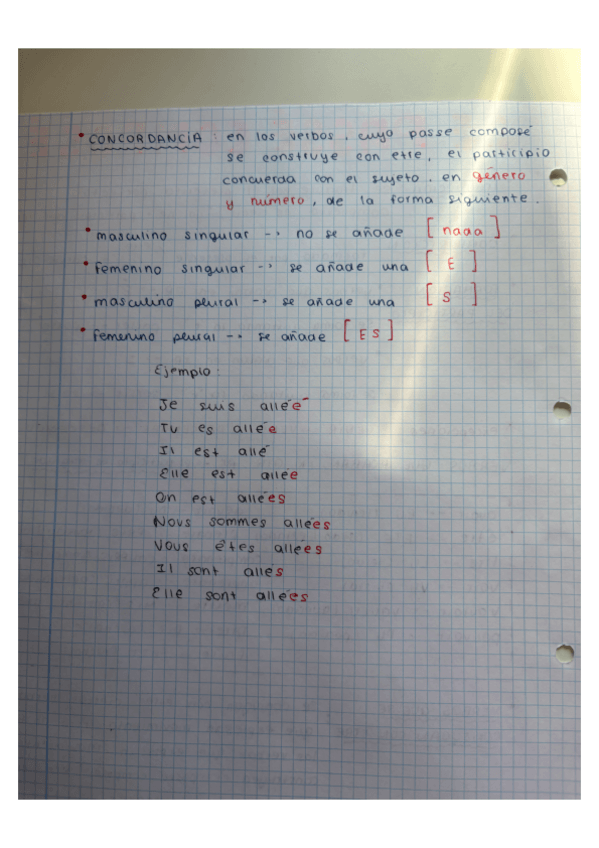 • CONCORDANCIA : en los verbos, cuyo passe composé
se construye con etre, el participio
concuerda con el sujeto. en género
y número, de la forma siguiente.
• masculino singular --> no se añade [ naaa ]
• femenino singular --> se añade una [ E ]
• masculino plural --> se añade una [ S ]
• femenino plural --> se añade [ ES ]
Ejemplo :
Je suis allée
Tu es allée
Il est allé
Elle est allée
On est allées
Nous sommes allées
Vous êtes allées
Il sont allés
Elle sont allées